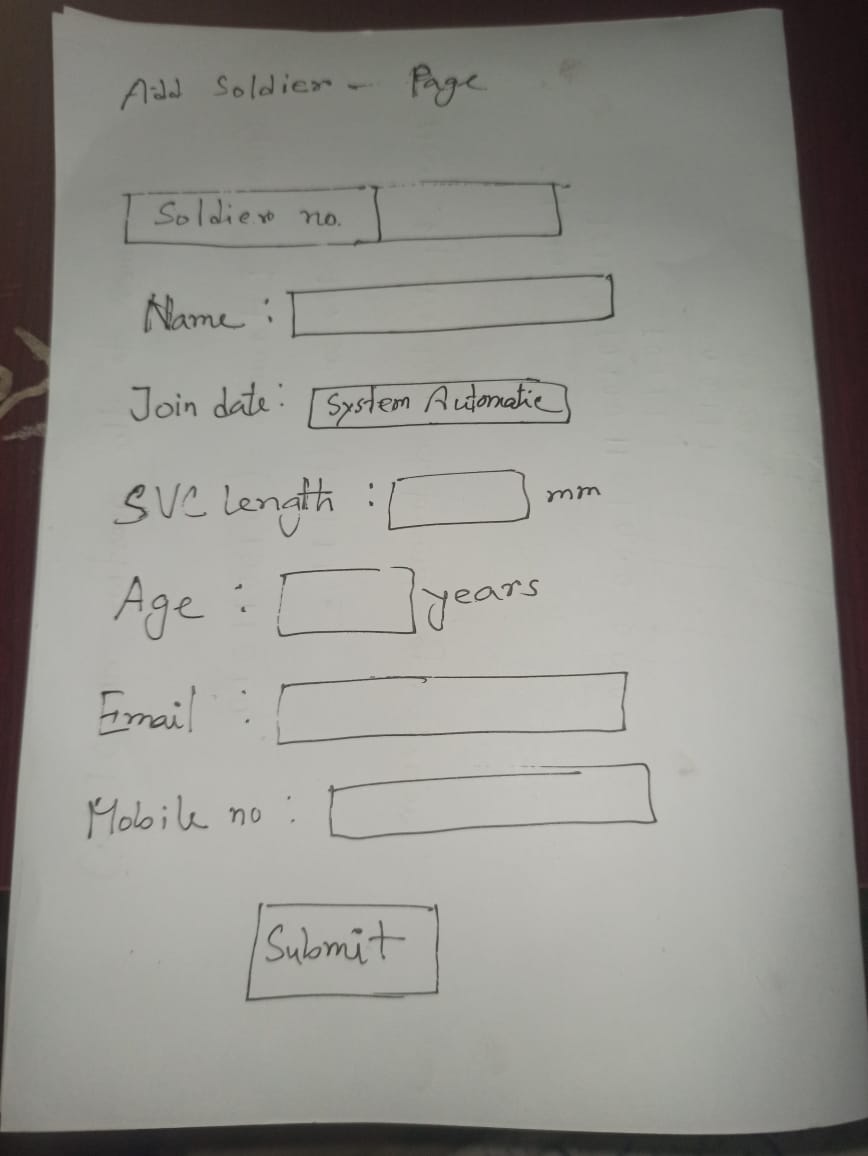 Add Soldier - Page
Soldier no.
Name :
Join date: System Automatic
SVC Length : mm
Age : years
Email :
Mobile no :
Submit